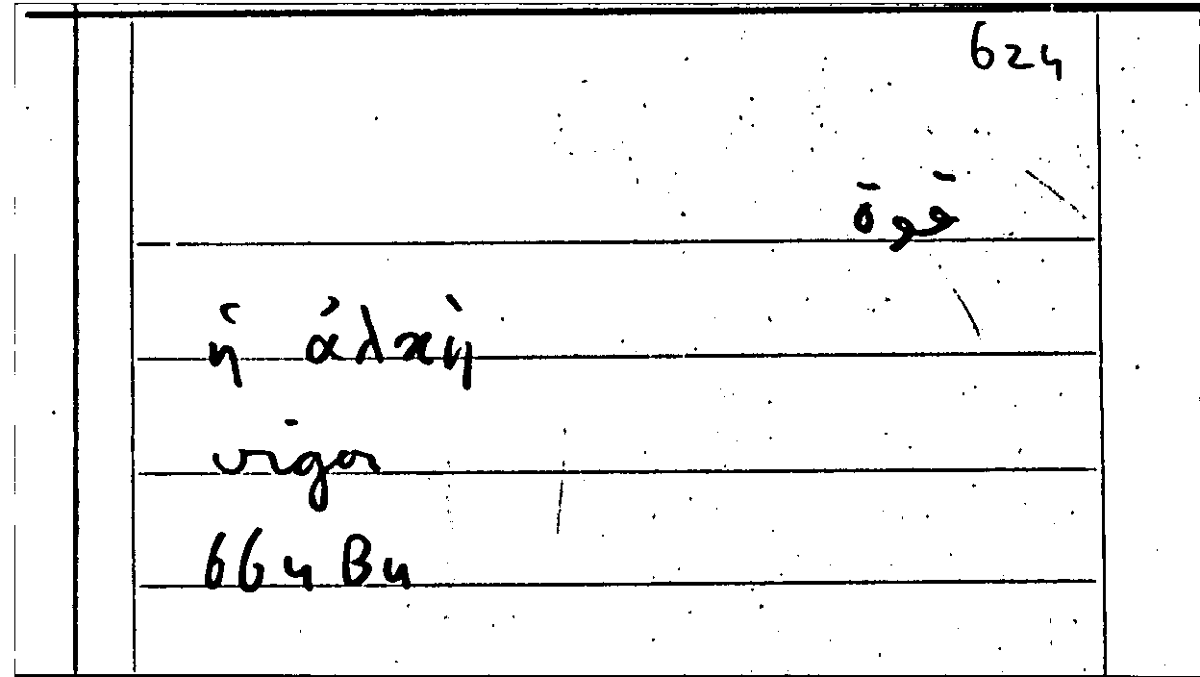 624
قوة
ἡ ἀλκὴ
vigor
664 B4